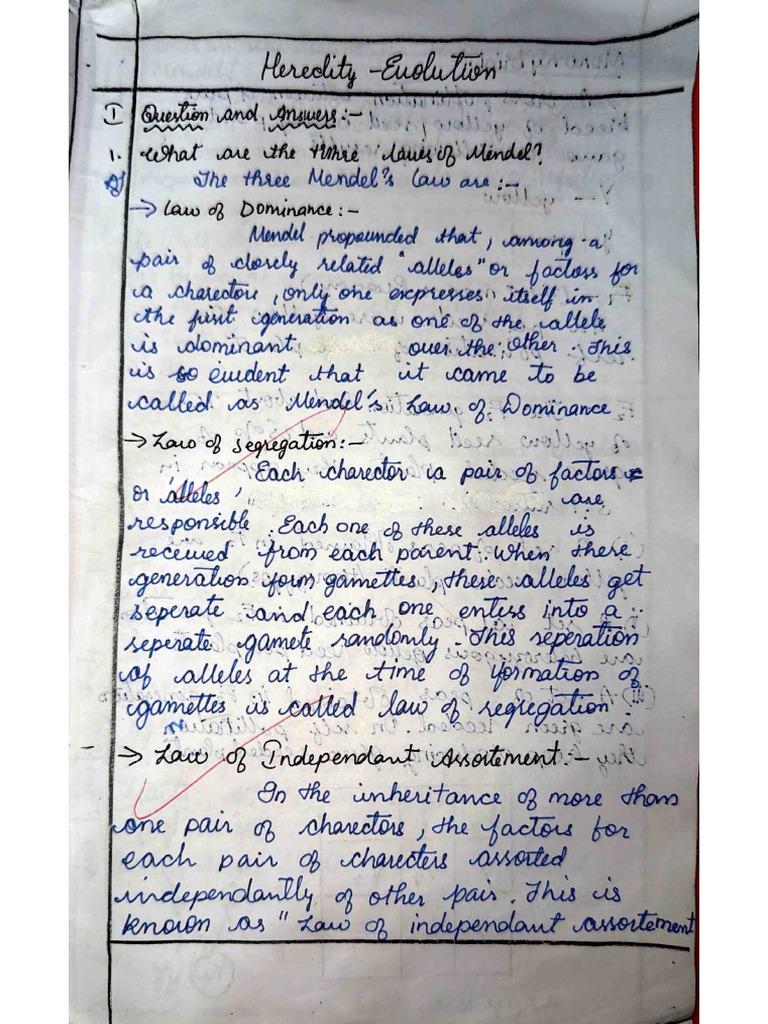 Heredity - Evolution
I Question and Answers:-
1. What are the three laws of Mendel?
A) The three Mendel's law are:-
→ Law of Dominance:-
Mendel propounded that, among a
pair of closely related "alleles" or factors for
a charectore, only one expresses itself in
the first generation as one of the allele
is dominant over the other. This
is so evident that it came to be
called as Mendel's Law of Dominance
→ Law of Segregation:-
Each charector is pair of factors
or 'alleles' are
responsible. Each one of these alleles is
received from each parent. When these
generation form gamettes, these alleles get
seperate and each one enters into a
seperate gamete randomly. This seperation
of alleles at the time of formation of
gamettes is called law of segregation
→ Law of Independant Assortement:-
In the inheritance of more than
one pair of charectors, the factors for
each pair of charecters assorted
independantly of other pair. This is
known as "Law of independant assortement